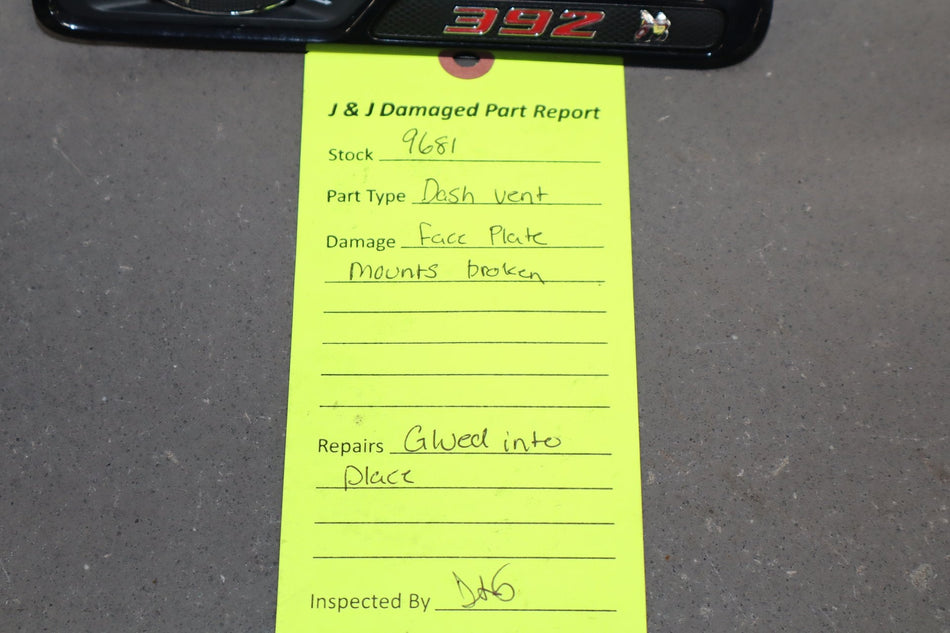 392
J & J Damaged Part Report
Stock 9681
Part Type Dash vent
Damage Face Plate
Mounts broken
Repairs Glued into
place
Inspected By